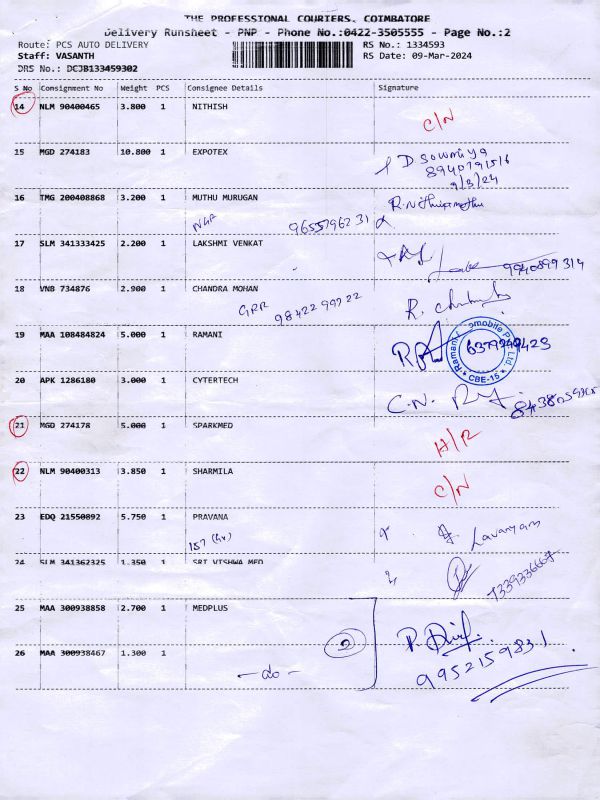 THE PROFESSIONAL COURIERS, COIMBATORE
Delivery Runsheet - PNP - Phone No.:0422-3505555 - Page No.:2
Route: PCS AUTO DELIVERY RS No.: 1334593
Staff: VASANTH RS Date: 09-Mar-2024
DRS No.: DCJB133459302
S No Consignment No Weight PCS Consignee Details Signature
14 NLM 90400465 3.800 1 NITHISH
C/N
15 MGD 274183 10.800 1 EXPOTEX
D. Sowmiya
8940791516
9/3/24
16 TMG 200408868 3.200 1 MUTHU MURUGAN
NGP 9655796231
17 SLM 341333425 2.200 1 LAKSHMI VENKAT
9940899314
18 VNB 734876 2.900 1 CHANDRA MOHAN
GRR 9842299922
19 MAA 108484824 5.000 1 RAMANI
6379949423
CBE-15
20 APK 1286180 3.000 1 CYTERTECH
C.N.
21 MGD 274178 5.000 1 SPARKMED
H/R
22 NLM 90400313 3.850 1 SHARMILA
C/N
23 EDQ 21550892 5.750 1 PRAVANA
Lavanyam
24 SLM 341362325 1.350 1 SRI VISHWA MED
7339336667
25 MAA 300938858 2.700 1 MEDPLUS
2
9952159831
26 MAA 300938467 1.300 1
-do-